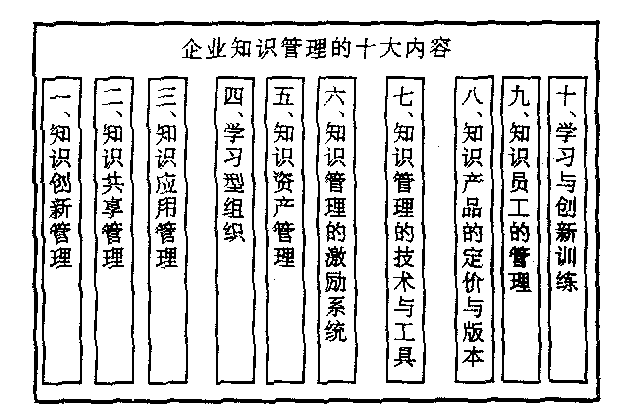 企业知识管理的十大内容
一、知识创新管理
二、知识共享管理
三、知识应用管理
四、学习型组织
五、知识资产管理
六、知识管理的激励系统
七、知识管理的技术与工具
八、知识产品的定价与版本
九、知识员工的管理
十、学习与创新训练